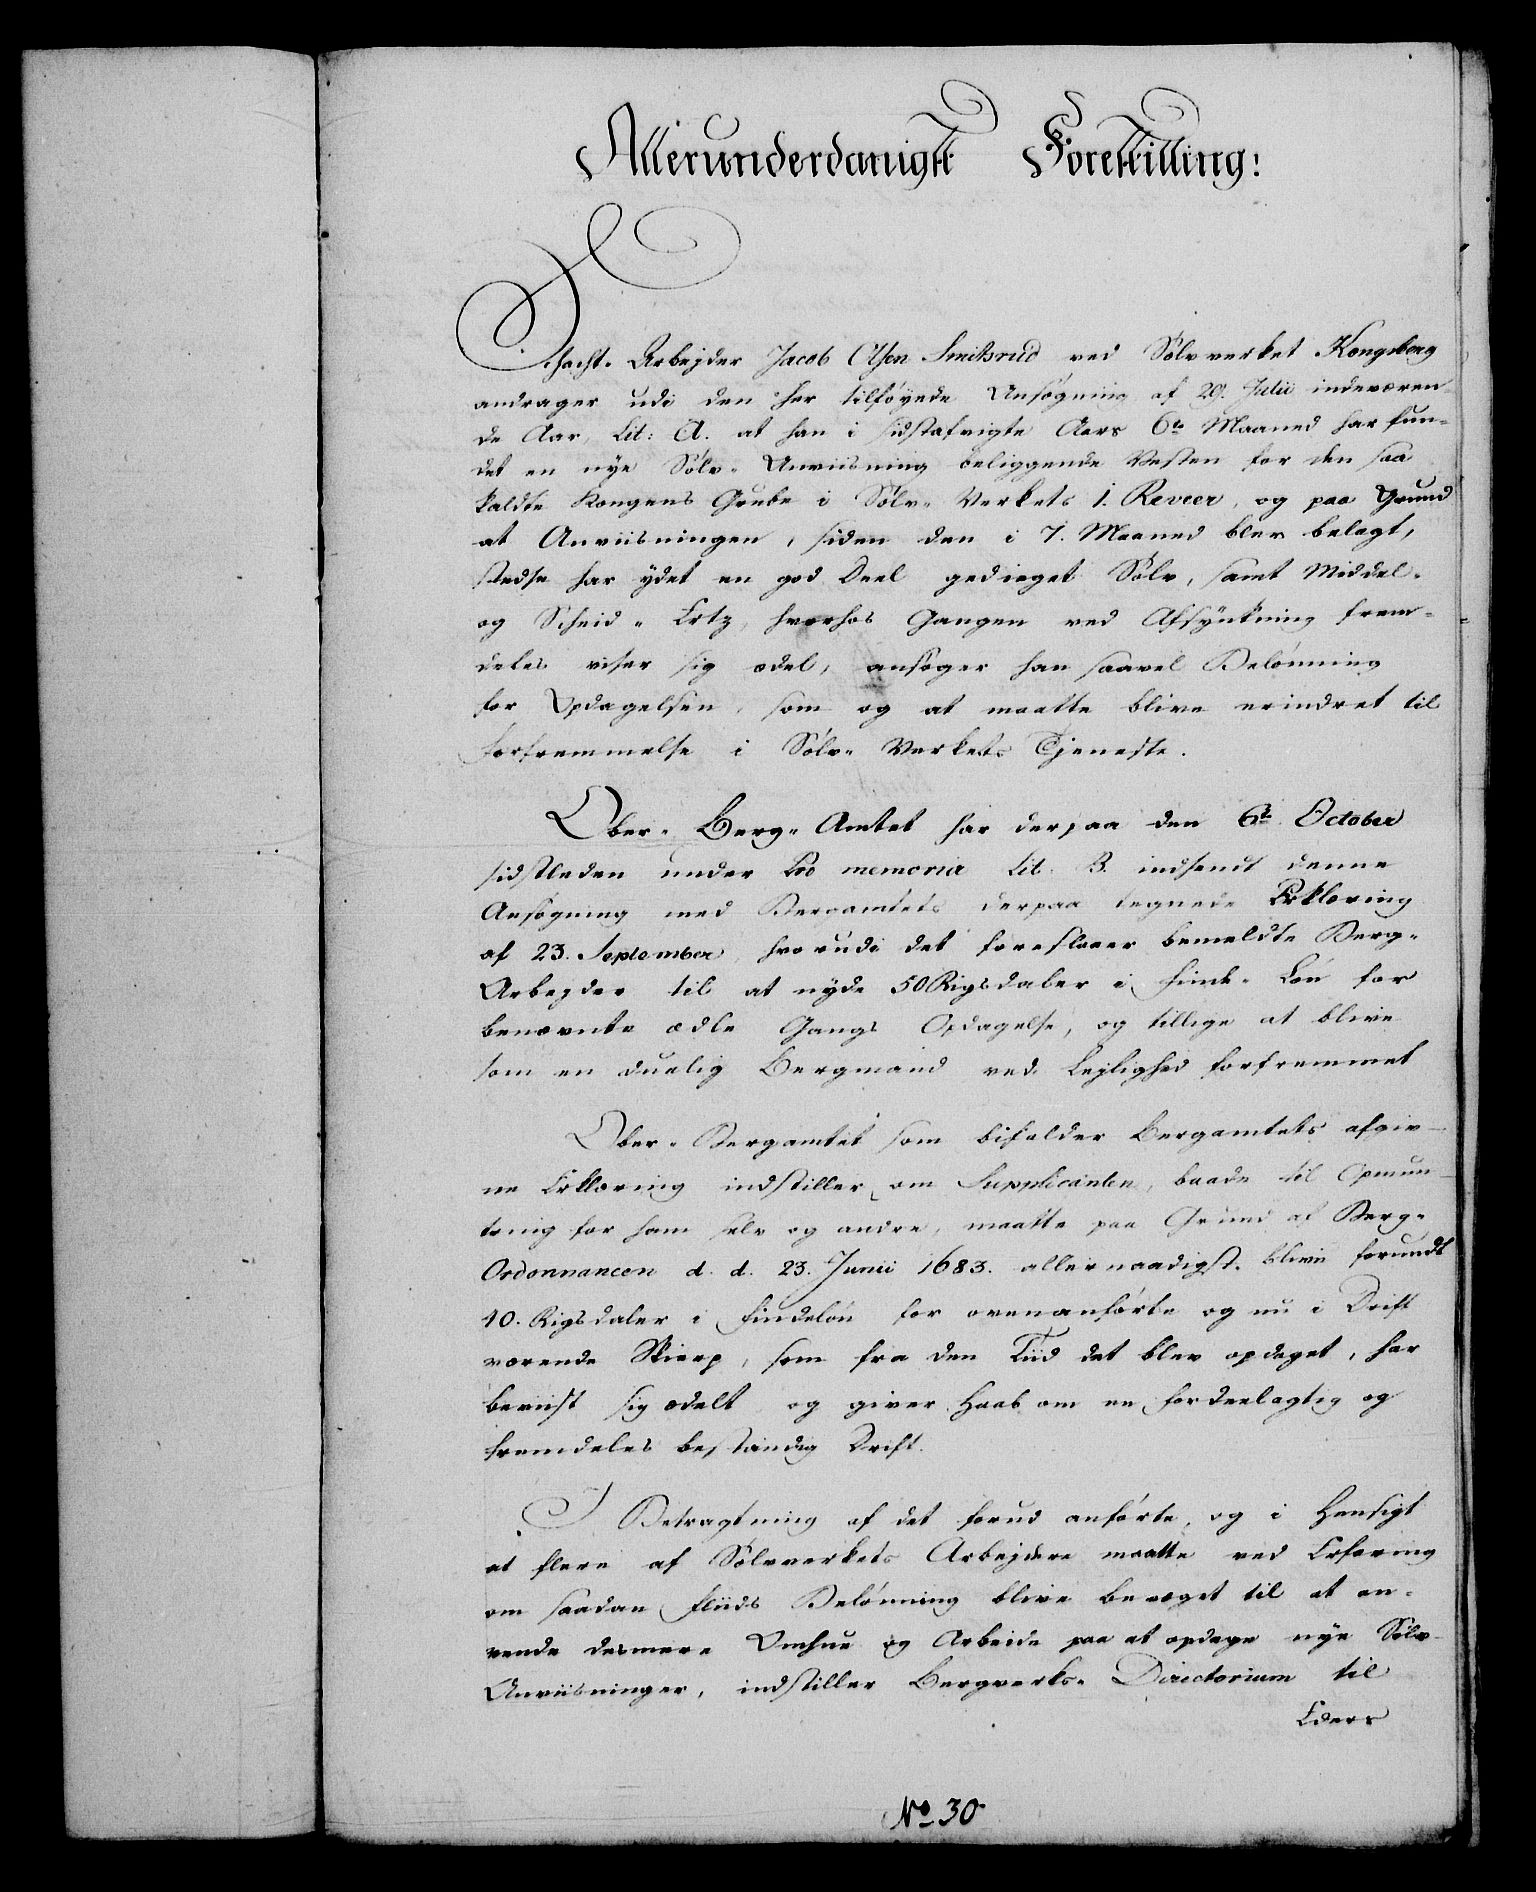 Allerunderdanigst Forestilling:
Schacht-Arbejder Jacob Olsen Smidsrud ved Sølvverket Kongsberg
andrager udi den her tilføyede Ansøgning af 29. Julii indeværen-
de Aar, Lit: A. at han i sidstafvigte Aars 6te Maaned har fun-
det en nye Sølv-Anviisning beliggende Vesten for den saa
kaldte Kongens Grube i Sølv-Verkets 1. Reveer, og paa Grund
at Anviisningen, siden den i 7. Maaned blev belagt,
stedse har ydet en god Deel gedieget Sølv, samt Middel-
og Scheid-Ertz, hvorhos Gangen ved Afsynkning frem-
deles viser sig ædel, ansøger han saavel Belønning
for Opdagelsen, som og at maatte blive erindret til
Forfremmelse i Sølv-Verkets Tjeneste.
Ober-Berg-Amtet har derpaa den 6te October
sidstleden under Pro memoria Lit. B. indsendt denne
Ansøgning med Bergamtets derpaa tegnede Erklæring
af 23. September, hvorudi det foreslaaer bemeldte Berg-
Arbejder til at nyde 50 Rigsdaler i Finde-Løn for
benævnte ædle Gangs Opdagelse, og tillige at blive
som en duelig Bergmand ved Lejlighed forfremmet
Ober-Bergamtet som bifalder Bergamtets afgiv-
ne Erklæring indstiller, om Supplicanten, baade til Opmun-
tring for ham selv og andre, maatte paa Grund af Berg-
Ordonnancen d. d. 23. Junii 1683. allernaadigst blive forundt
40. Rigsdaler i Findeløn for ovenanførte og nu i Drift
værende Skierp, som fra den Tiid det blev opdaget, har
beviist sig ædelt og giver Haab om en fordeelagtig og
fremdeles bestandig Drift.
I Betragtning af det forud anførte, og i Hensigt
at flere af Sølvverkets Arbejdere maatte ved Erfaring
om saadan Fliids Belønning blive bevæget til at an-
vende desmere Umhue og Arbeide paa at opdage nye Sølv-
Anviisninger, indstiller Bergverks-Directorium til
Eders
No 30